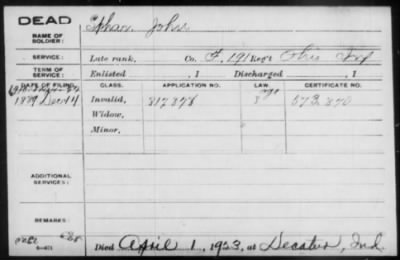 DEAD
NAME OF SOLDIER: John
SERVICE: Late rank, Co. F, 191 Reg't Ohio Inf
TERM OF SERVICE: Enlisted , 1 Discharged , 1
DATE OF FILING. CLASS. APPLICATION NO. LAW. CERTIFICATE NO.
Invalid, 817878 573.870
Widow,
Minor,
ADDITIONAL SERVICES:
REMARKS:
Died April 1, 1923, at Decatur, Ind.